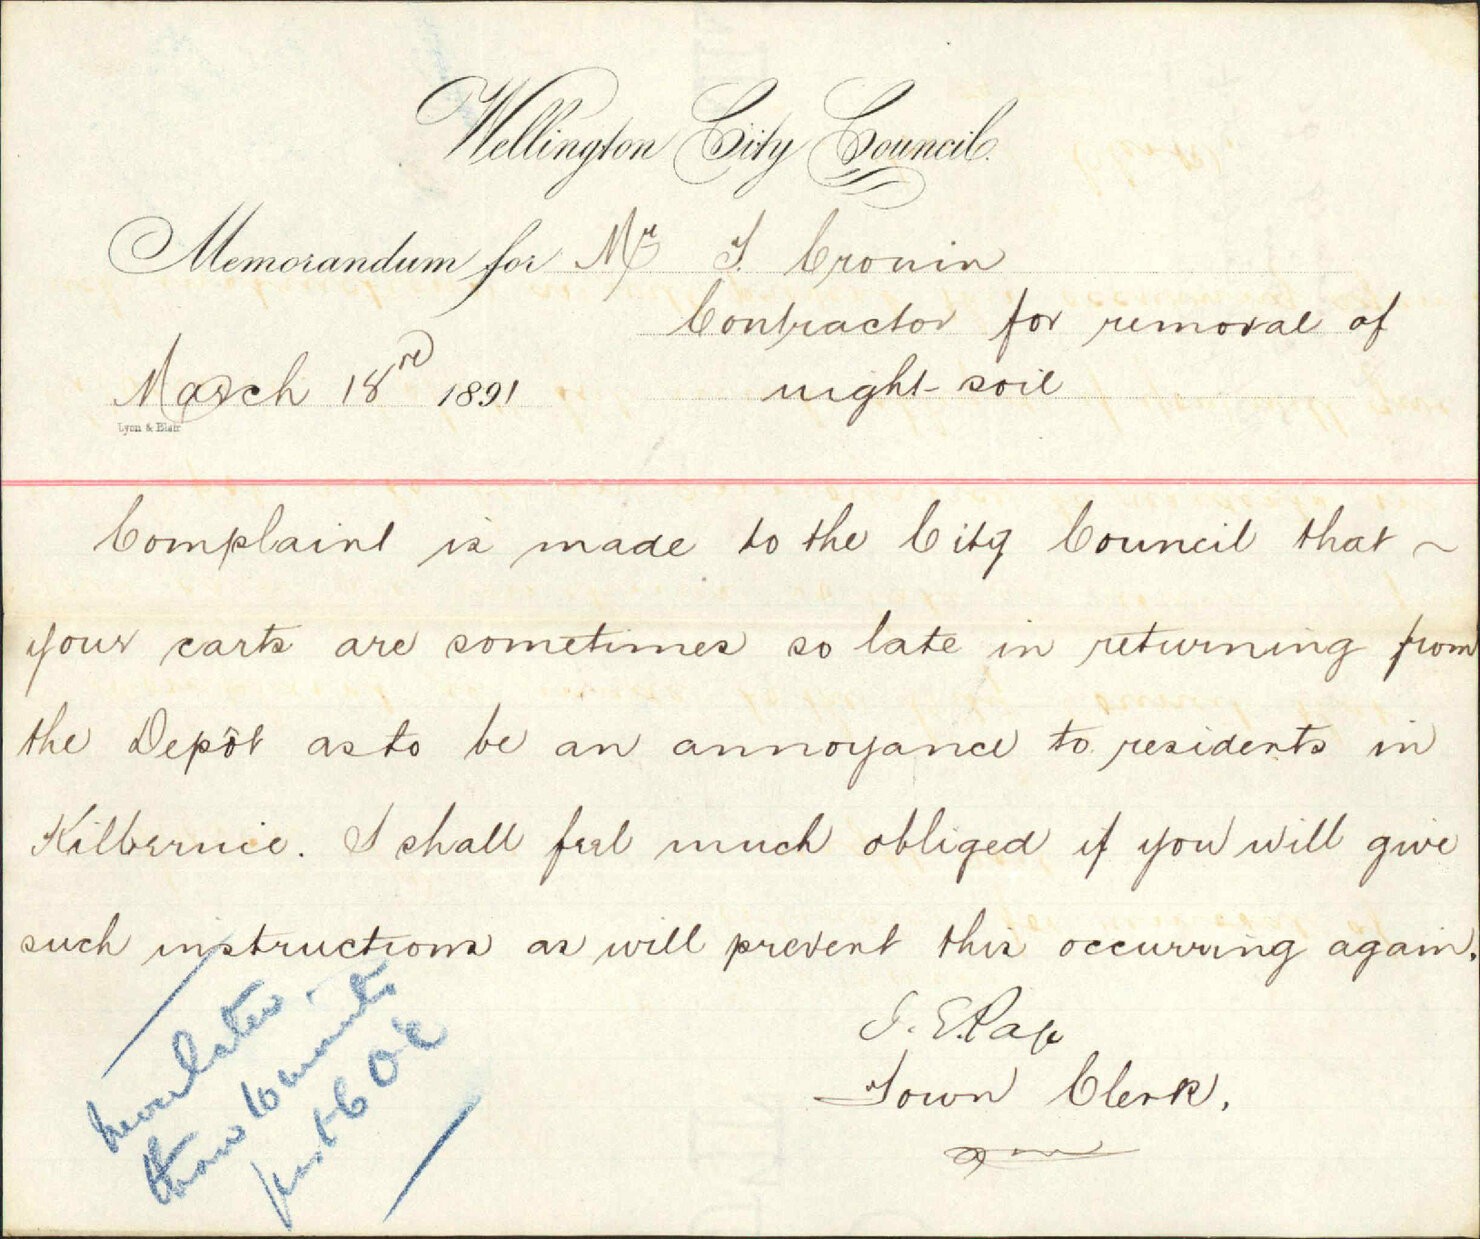 Wellington City Council.
Memorandum for Mr J. Cronin
Contractor for removal of
night-soil
March 18rd 1891
Lyon & Blair
Complaint is made to the City Council that ~
your carts are sometimes so late in returning from
the Depôt as to be an annoyance to residents in
Kilbernie. I shall feel much obliged if you will give
such instructions as will prevent this occurring again.
J. E. Page
Town Clerk.
never later
than 10 minutes
past 6 O'c